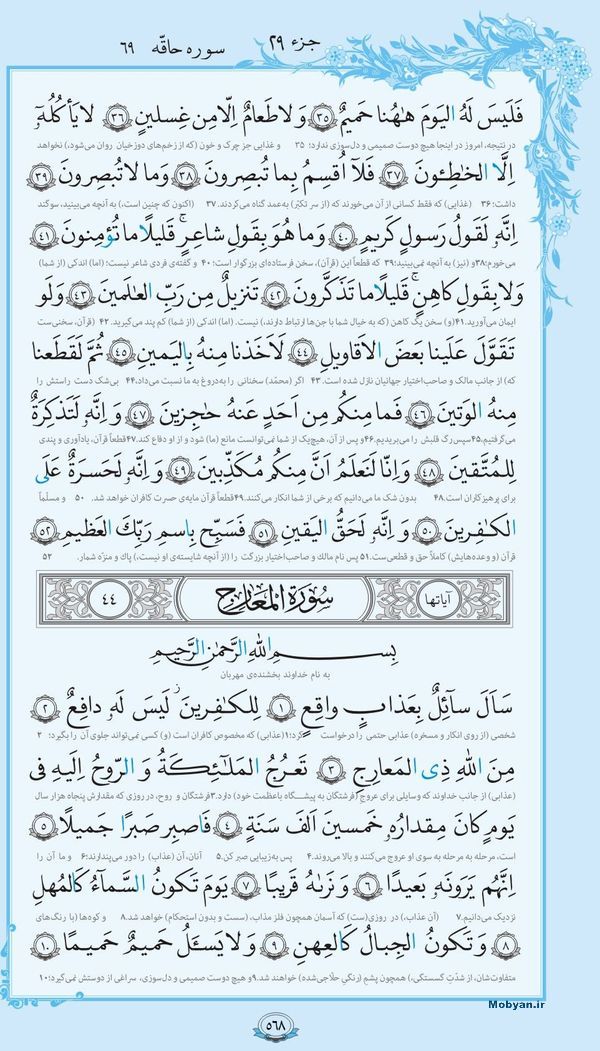 جزء ۲۹ سوره حاقّه ۶۹
فَلَيسَ لَهُ اليَومَ هٰهُنا حَميمٌ ﴿۳۵﴾ وَلا طَعامٌ اِلّا مِن غِسلينٍ ﴿۳۶﴾ لا يَأكُلُهُٓ
در نتیجه، امروز در اینجا هیچ دوست صمیمی و دل‌سوزی ندارد؛ ۳۵ و غذایی جز چرک و خون (که از زخم‌های دوزخیان روان می‌شود،) نخواهد
اِلَّا الخٰطِـٔونَ ﴿۳۷﴾ فَلآ اُقسِمُ بِما تُبصِرونَ ﴿۳۸﴾ وَما لا تُبصِرونَ ﴿۳۹﴾
داشت؛ ۳۶ (غذایی) که فقط کسانی از آن می‌خورند که (از سر تکبّر) به‌عمد گناه می‌کردند. ۳۷ (اکنون که چنین است،) به آنچه می‌بینید، سوگند
اِنَّهُ لَقَولُ رَسولٍ كَريمٍ ﴿۴۰﴾ وَما هُوَ بِقَولِ شاعِرٍ ۚ قَليلًا ما تُؤمِنونَ ﴿۴۱﴾
می‌خورم؛ ۳۸ و (نیز) به آنچه نمی‌بینید؛ ۳۹ که قطعاً این (قرآن)، سخن فرستاده‌ای بزرگوار است؛ ۴۰ و گفته‌ی فردی شاعر نیست؛ (اما) اندکی (از شما)
وَلا بِقَولِ كاهِنٍ ۚ قَليلًا ما تَذَكَّرونَ ﴿۴۲﴾ تَنزيلٌ مِن رَبِّ العٰلَمينَ ﴿۴۳﴾ وَلَو
ایمان می‌آورید. ۴۱ (و) سخن یک کاهن (که به خیال شما با جن‌ها ارتباط دارند،) نیست. (اما) اندکی (از شما) کم پند می‌گیرید. ۴۲ (قرآن، سخنی‌ست
تَقَوَّلَ عَلَينا بَعضَ الاَقاويلِ ﴿۴۴﴾ لَاَخَذنا مِنهُ بِاليَمينِ ﴿۴۵﴾ ثُمَّ لَقَطَعنا
که) از جانب مالک و صاحب‌اختیار جهانیان نازل شده است. ۴۳ اگر (محمّد) سخنانی را به‌دروغ به ما نسبت می‌داد، ۴۴ بی‌شک دست راستش را
مِنهُ الوَتينَ ﴿۴۶﴾ فَما مِنكُم مِن اَحَدٍ عَنهُ حٰجِزينَ ﴿۴۷﴾ وَ اِنَّهُ لَتَذكِرَةٌ
می‌گرفتیم، ۴۵ سپس رگ قلبش را می‌بریدیم. ۴۶ و پس از آن، هیچ‌یک از شما نمی‌توانست مانع (ما) شود و از او دفاع کند. ۴۷ قطعاً قرآن، یادآوری و پندی
لِلمُتَّقينَ ﴿۴۸﴾ وَ اِنّا لَنَعلَمُ اَنَّ مِنكُم مُكَذِّبينَ ﴿۴۹﴾ وَ اِنَّهُ لَحَسرَةٌ عَلَى
برای پرهیزکاران است. ۴۸ بدون شک ما می‌دانیم که برخی از شما انکار می‌کنند. ۴۹ قطعاً قرآن مایه‌ی حسرت کافران خواهد شد. ۵۰ و مسلّماً
الكٰفِرينَ ﴿۵۰﴾ وَ اِنَّهُ لَحَقُّ اليَقينِ ﴿۵۱﴾ فَسَبِّح بِاسمِ رَبِّكَ العَظيمِ ﴿۵۲﴾
قرآن (و وعده‌هایش) کاملاً حق و قطعی‌ست. ۵۱ پس نام مالک و صاحب‌اختیار بزرگت را (از آنچه شایسته‌ی او نیست،) پاک و منزّه شمار. ۵۲
آیاتها سُورَةُ المَعارِج ۴۴
بِسمِ اللهِ الرَّحمٰنِ الرَّحيمِ
به نام خداوند بخشنده‌ی مهربان
سَاَلَ سآئِلٌ بِعَذابٍ واقِعٍ ﴿۱﴾ لِلكٰفِرينَ لَيسَ لَهُ دافِعٌ ﴿۲﴾
شخصی (از روی انکار و مسخره) عذابی حتمی را درخواست کرد؛ ۱ (عذابی) که مخصوص کافران است (و) کسی نمی‌تواند جلوی آن را بگیرد؛ ۲
مِنَ اللهِ ذِي المَعارِجِ ﴿۳﴾ تَعرُجُ المَلآئِكَةُ وَ الرّوحُ اِلَيهِ في
(عذابی) از جانب خداوند که وسایلی برای عروج (فرشتگان به پیشگاه باعظمت خود) دارد. ۳ فرشتگان و روح، در روزی که مقدارش پنجاه هزار سال
يَومٍ كانَ مِقدارُهُ خَمسينَ اَلفَ سَنَةٍ ﴿۴﴾ فَاصبِر صَبرًا جَميلًا ﴿۵﴾
است، مرحله به مرحله به سوی او عروج می‌کنند و بالا می‌روند. ۴ پس به‌زیبایی صبر کن. ۵ آنان، آن (عذاب) را دور می‌پندارند؛ ۶ و ما آن را
اِنَّهُم يَرَونَهُ بَعيدًا ﴿۶﴾ وَ نَرٰىهُ قَريبًا ﴿۷﴾ يَومَ تَكونُ السَّمآءُ كَالمُهلِ
نزدیک می‌دانیم. ۷ (آن عذاب،) در روزی(ست) که آسمان همچون فلز مذاب، (سست و بدون استحکام) خواهد شد. ۸ و کوه‌ها (با رنگ‌های
﴿۸﴾ وَ تَكونُ الجِبالُ كَالعِهنِ ﴿۹﴾ وَلا يَسـَٔلُ حَميمٌ حَميمًا ﴿۱۰﴾
متفاوت‌شان، از شدّتِ گسستگی،) همچون پشم (رنگیِ حلّاجی‌شده) خواهند شد. ۹ و هیچ دوست صمیمی و دل‌سوزی، سراغی از دوستش نمی‌گیرد؛ ۱۰
Mobyan.ir
۵۶۸